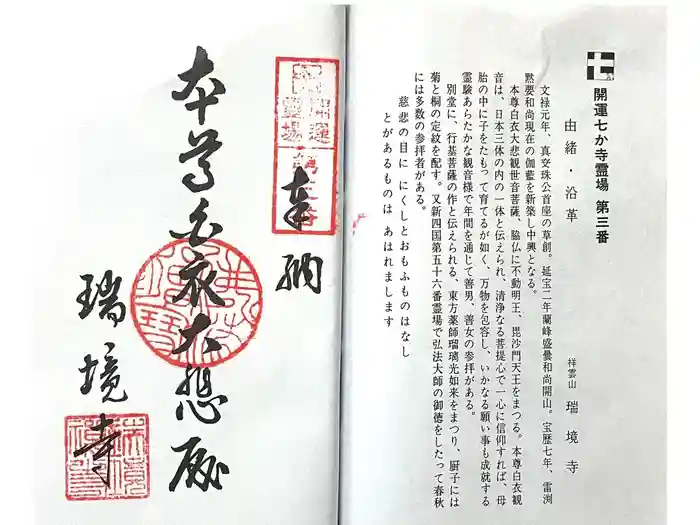 開運七か寺霊場 第三番
由緒・沿革
祥雲山 瑞境寺
文禄元年、真交珠公首座の草創。延宝二年蘭峰盛曇和尚開山。宝歴七年、雷渕
黙要和尚現在の伽藍を新築し中興となる。
本尊白衣大悲観世音菩薩、脇仏に不動明王、毘沙門天王をまつる。本尊白衣観
音は、日本三体の内の一体と伝えられ、清浄なる菩提心で一心に信仰すれば、母
胎の中に子をたもって育てるが如く、万物を包容し、いかなる願い事も成就する
霊験あらたかな観音様で年間を通じて善男、善女の参拝がある。
別堂に、行基菩薩の作と伝えられる、東方薬師瑠璃光如来をまつり、厨子には
菊と桐の定紋を配す。又新四国第五十六番霊場で弘法大師の御徳をしたって春秋
には多数の参拝者がある。
慈悲の目に にくしとおもふものはなし
とがあるものは あはれまします
開運
霊場
奉納
本尊白衣大悲殿
瑞境寺